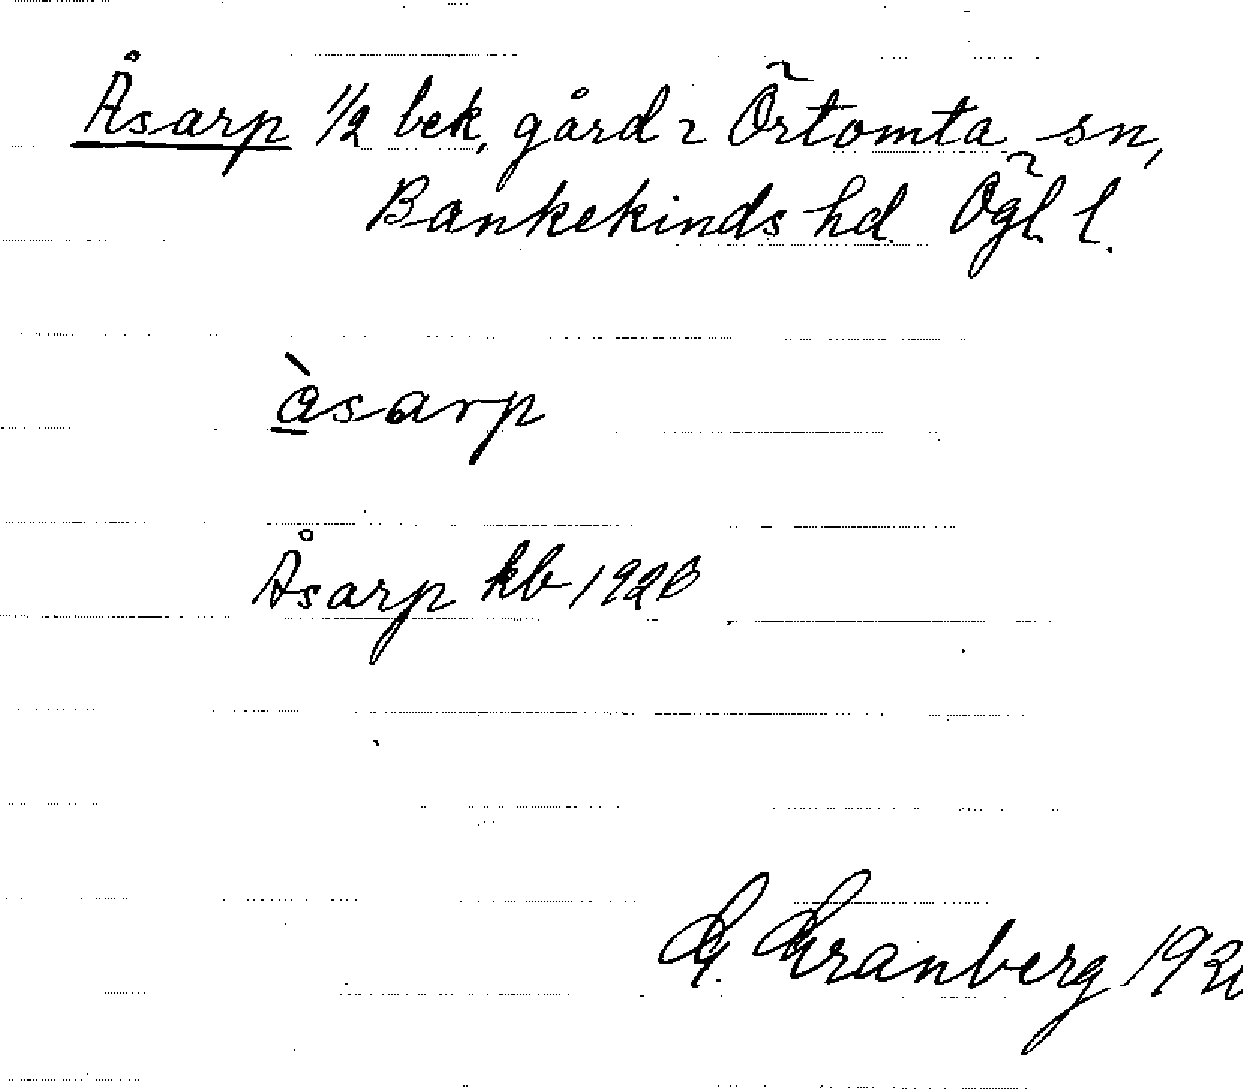 Åsarp 1/2 bek, gård i Örtomta sn,
Bankekinds hd. Ögl. l.
àsarp
Åsarp kb 1928
Granberg